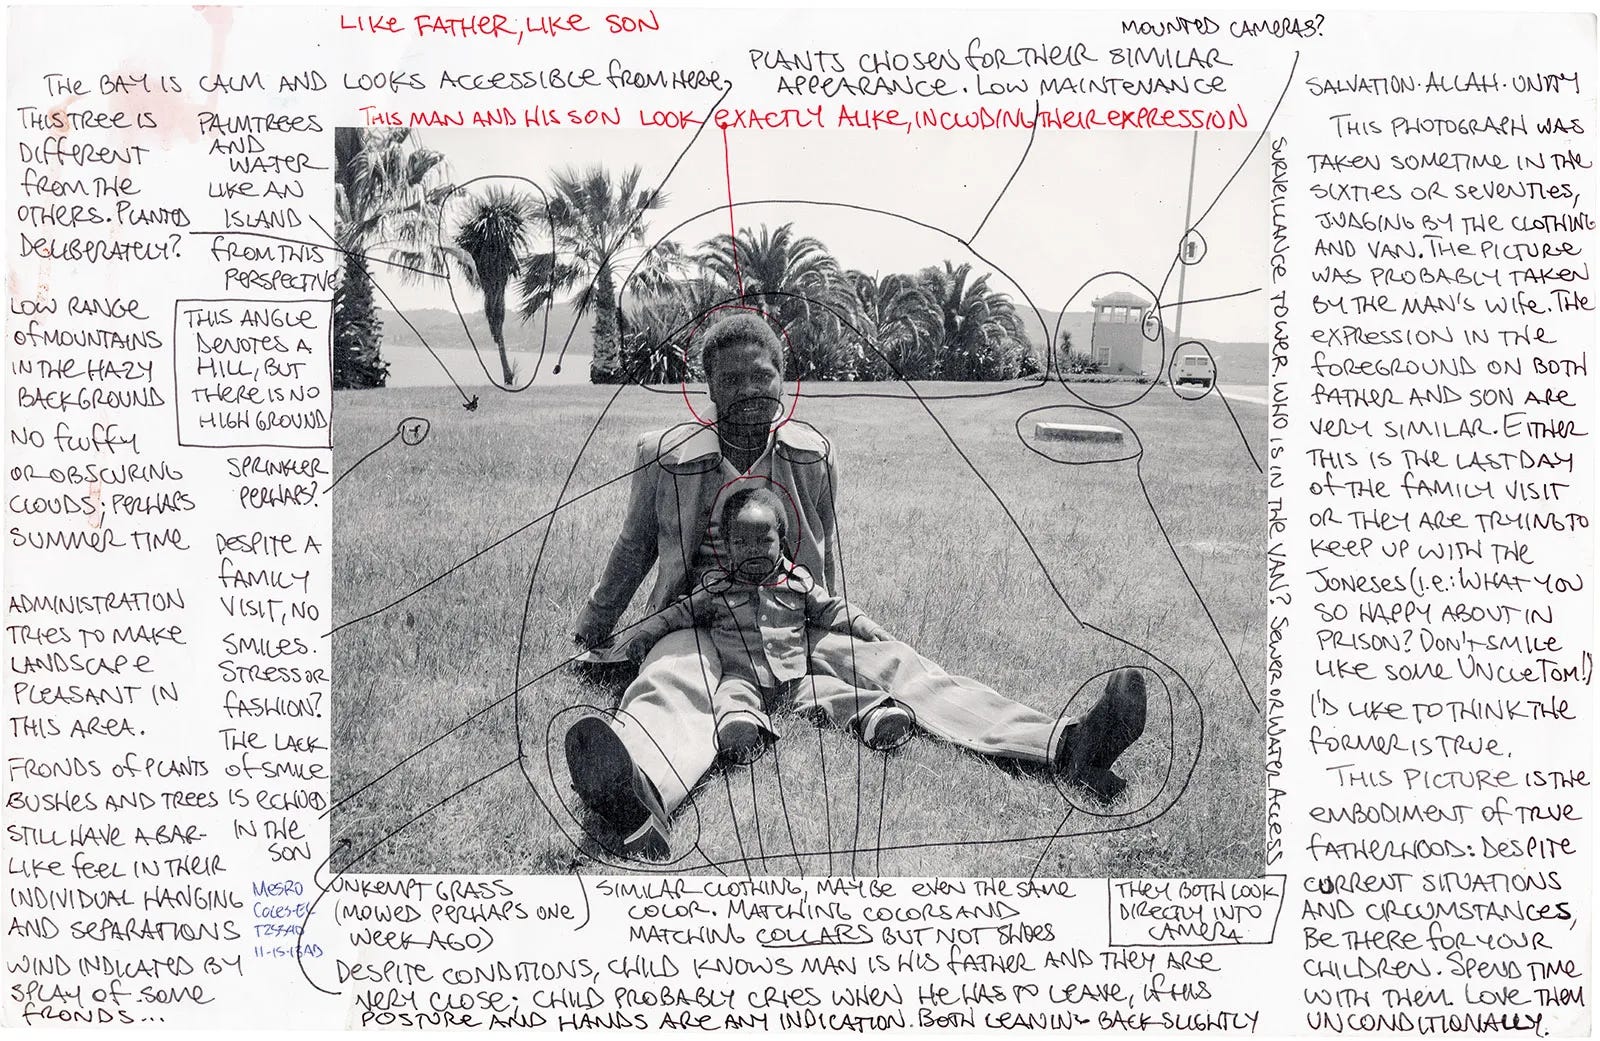 LIKE FATHER, LIKE SON
MOUNTED CAMERAS?
THE BAY IS CALM AND LOOKS ACCESSIBLE FROM HERE,
PLANTS CHOSEN FOR THEIR SIMILAR
APPEARANCE. LOW MAINTENANCE
THIS MAN AND HIS SON LOOK EXACTLY ALIKE, INCLUDING THEIR EXPRESSION
THIS TREE IS
DIFFERENT
FROM THE
OTHERS. PLANTED
DELIBERATELY?
PALMTREES
AND
WATER
LIKE AN
ISLAND
FROM THIS
PERSPECTIVE
LOW RANGE
OF MOUNTAINS
IN THE HAZY
BACKGROUND
NO FLUFFY
OR OBSCURING
CLOUDS; PERHAPS
SUMMER TIME
THIS ANGLE
DENOTES A
HILL, BUT
THERE IS NO
HIGH GROUND
SPRINKLER
PERHAPS?
DESPITE A
FAMILY
VISIT, NO
SMILES.
STRESS OR
FASHION?
THE LACK
OF SMILE
IS ECHOED
IN THE
SON
ADMINISTRATION
TRIES TO MAKE
LANDSCAPE
PLEASANT IN
THIS AREA.
FRONDS OF PLANTS
BUSHES AND TREES
STILL HAVE A BAR-
LIKE FEEL IN THEIR
INDIVIDUAL HANGING
AND SEPARATIONS
WIND INDICATED BY
SPLAY OF SOME
FRONDS...
MESRO
COLES-EL
11-15-13AD
UNKEMPT GRASS
(MOWED PERHAPS ONE
WEEK AGO)
SIMILAR CLOTHING, MAYBE EVEN THE SAME
COLOR. MATCHING COLORS AND
MATCHING COLLARS BUT NOT SHOES
THEY BOTH LOOK
DIRECTLY INTO
CAMERA
DESPITE CONDITIONS, CHILD KNOWS MAN IS HIS FATHER AND THEY ARE
VERY CLOSE; CHILD PROBABLY CRIES WHEN HE HAS TO LEAVE, IF HIS
POSTURE AND HANDS ARE ANY INDICATION. BOTH LEANING BACK SLIGHTLY
SURVEILLANCE TOWER. WHO IS IN THE VAN? SEWER OR WATER ACCESS
SALVATION·ALLAH·UNITY
THIS PHOTOGRAPH WAS
TAKEN SOMETIME IN THE
SIXTIES OR SEVENTIES,
JUDGING BY THE CLOTHING
AND VAN. THE PICTURE
WAS PROBABLY TAKEN
BY THE MAN'S WIFE. THE
EXPRESSION IN THE
FOREGROUND ON BOTH
FATHER AND SON ARE
VERY SIMILAR. EITHER
THIS IS THE LAST DAY
OF THE FAMILY VISIT
OR THEY ARE TRYING TO
KEEP UP WITH THE
JONESES (I.E.: WHAT YOU
SO HAPPY ABOUT IN
PRISON? DON'T SMILE
LIKE SOME UNCLE TOM!)
I'D LIKE TO THINK THE
FORMER IS TRUE.
THIS PICTURE IS THE
EMBODIMENT OF TRUE
FATHERHOOD: DESPITE
CURRENT SITUATIONS
AND CIRCUMSTANCES,
BE THERE FOR YOUR
CHILDREN. SPEND TIME
WITH THEM. LOVE THEM
UNCONDITIONALLY.